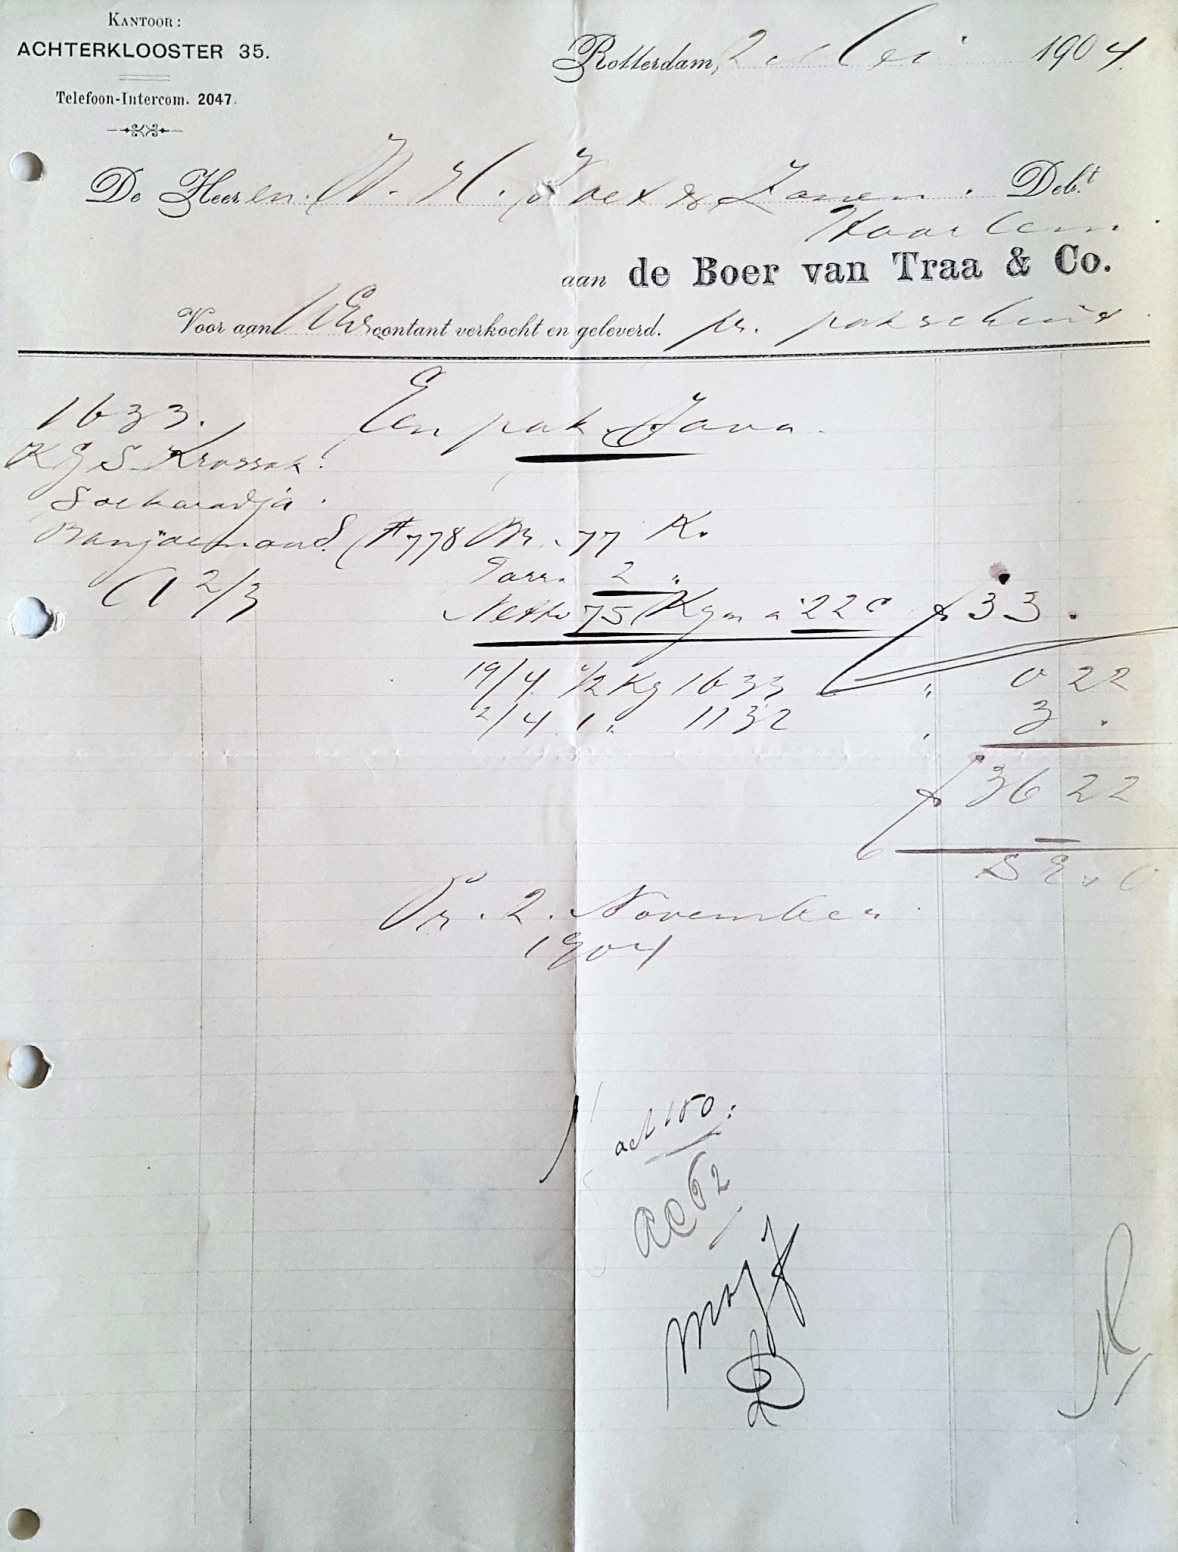 KANTOOR:
ACHTERKLOOSTER 35.
Telefoon-Intercom. 2047.
Rotterdam, 2 Mei 1904.
De Heeren W. H. & Zonen. Deb.t
Haarlem.
aan de Boer van Traa & Co.
Voor aan contant verkocht en geleverd. pr.
1633. Een pak Java.
KGS Krossok.
Soekaradja.
#778 Br. 77 K.
A 2/3 Tarra 2 "
Netto 75 Kgm a 22 c f 33.
19/4 1/2 Kg 1633 " 0 22
2/4 1 " 1132 " 3.
f 36 22
Pr. 2. November
1904